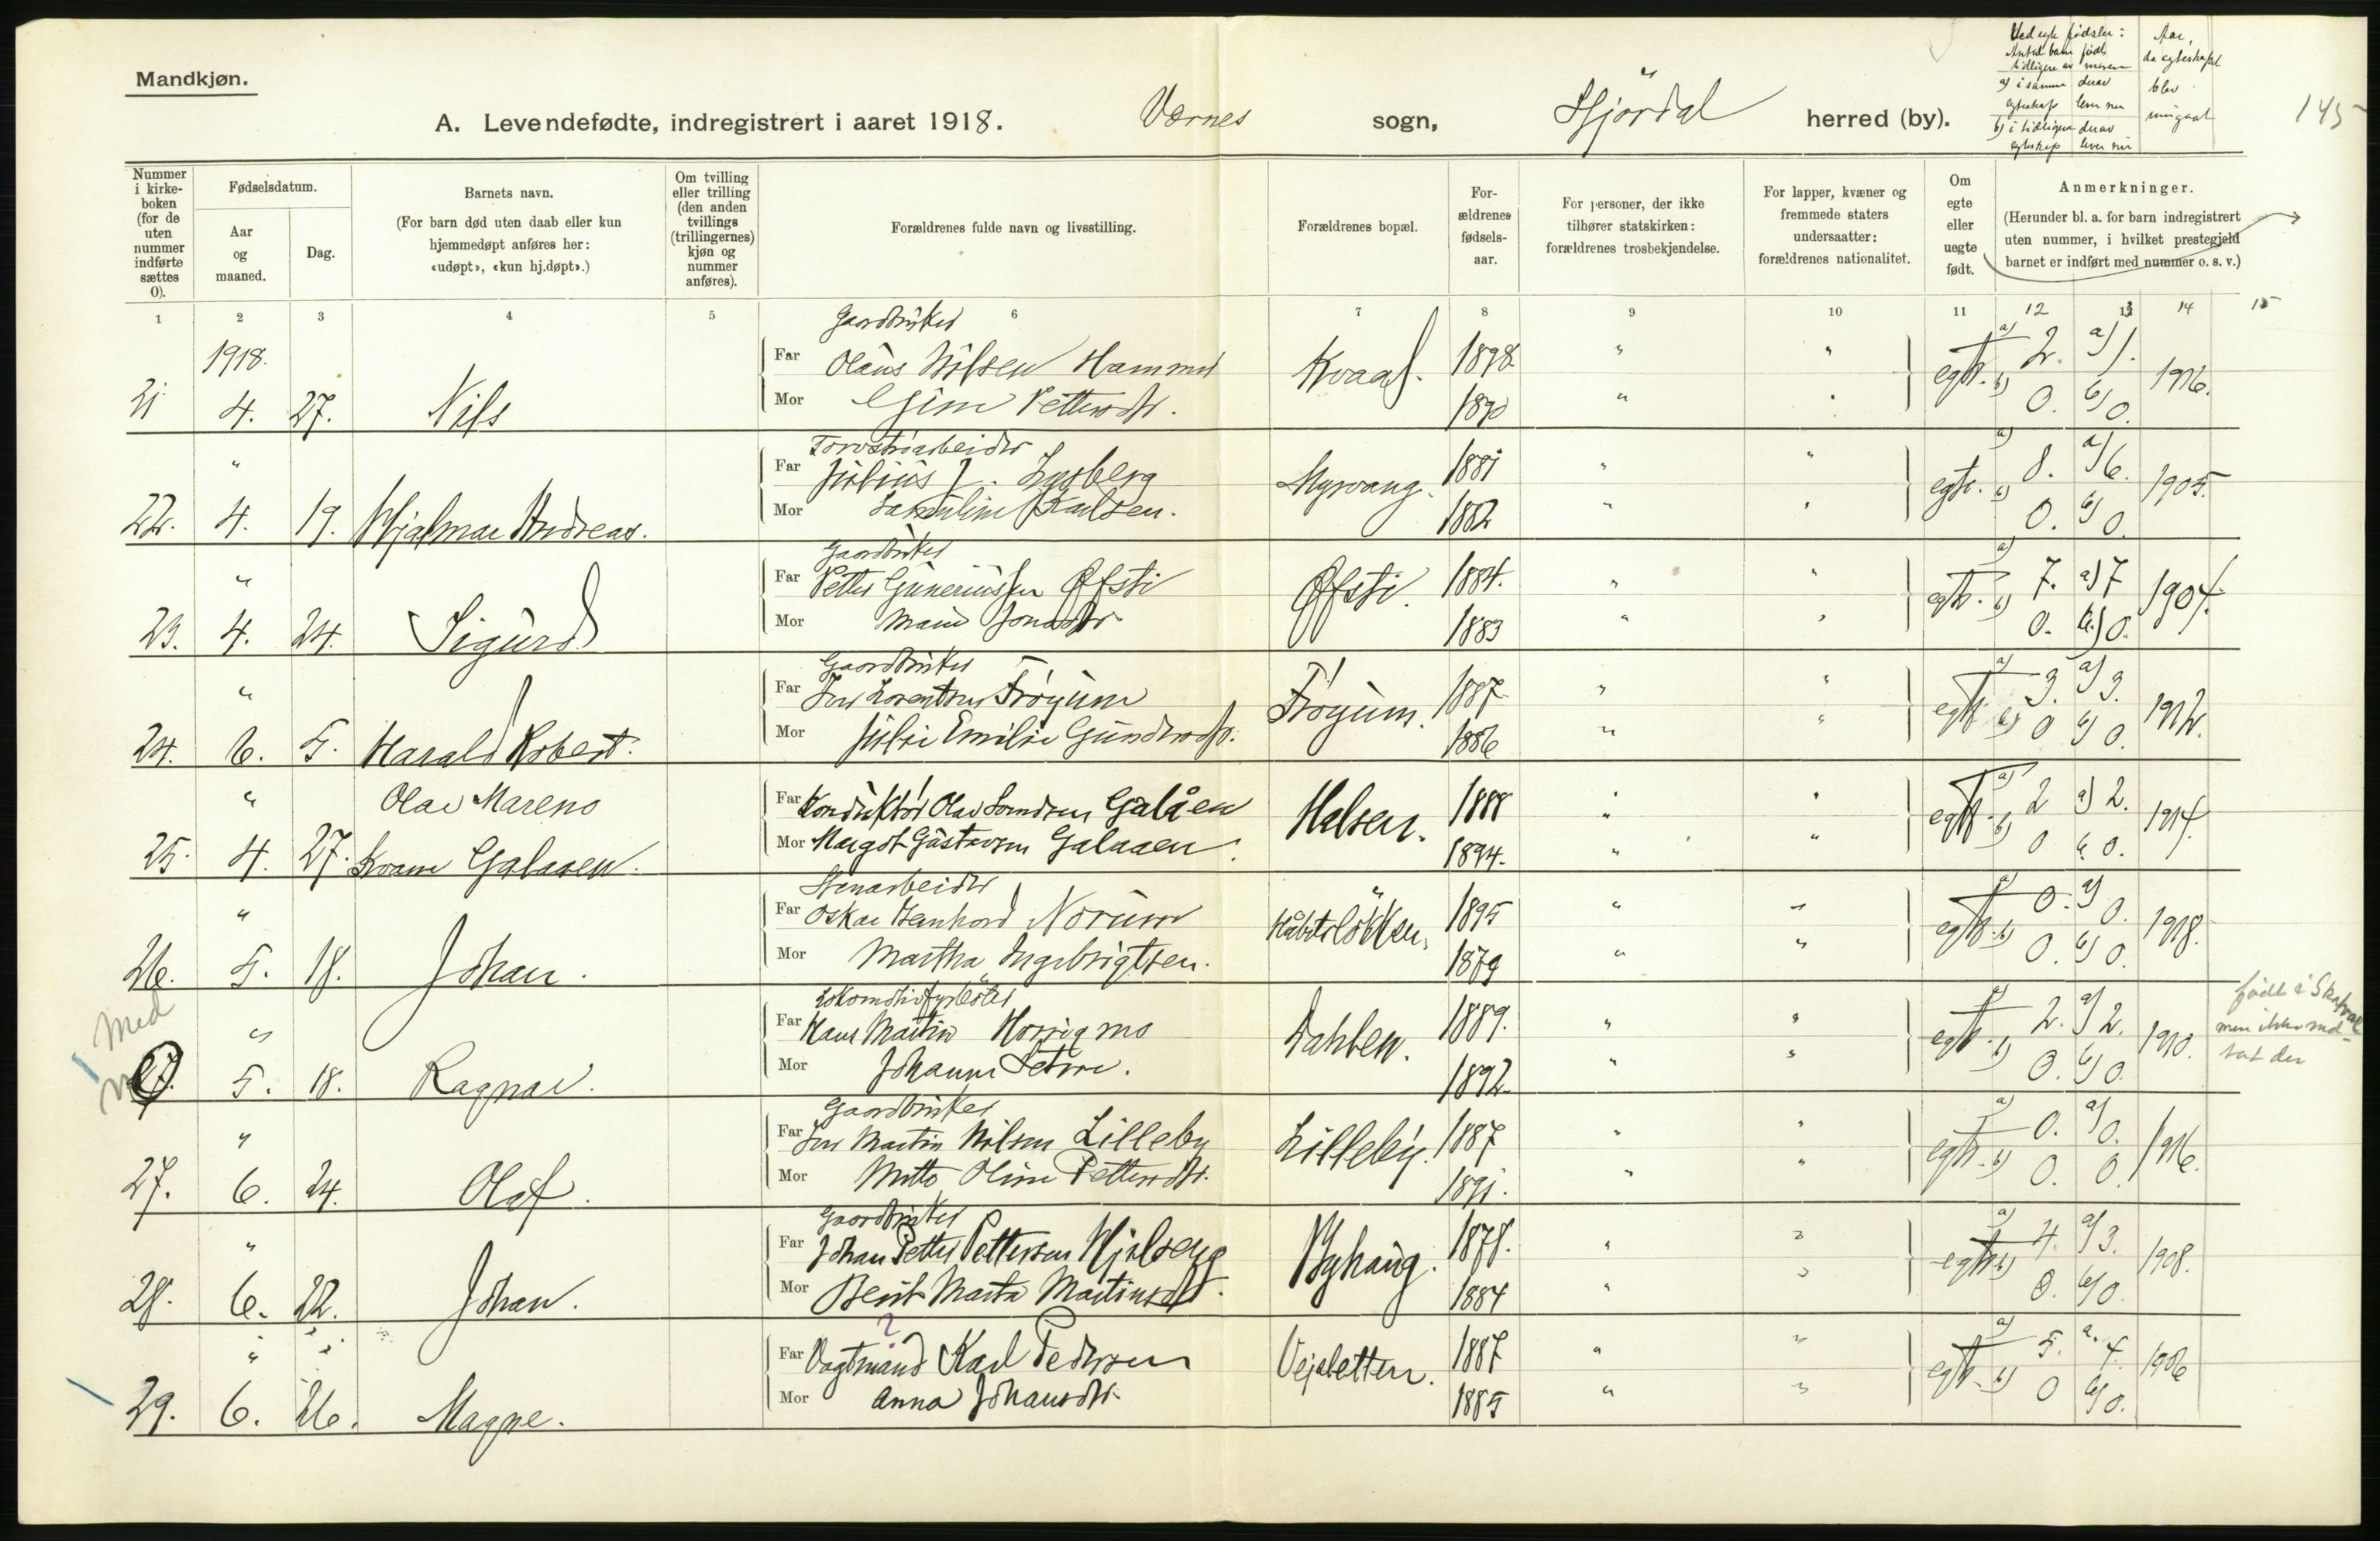 Mandkjøn.
A. Levendefødte, indregistrert i aaret 1918. Værnes sogn, Stjørdal herred (by).
Ved egte fødsler:
Antal barn født
tidligere av moren
a) i samme egteskap
derav lever nu
b) i tidligere egteskap
derav lever nu
Aar, da egteskapet blev inngaat
145
Nummer i kirke-boken (for de uten nummer indførte sættes 0).
Fødselsdatum.
Aar og maaned.
Dag.
Barnets navn.
(For barn død uten daab eller kun hjemmedøpt anføres her: «udøpt», «kun hj.døpt».)
Om tvilling eller trilling (den anden tvillings (trillingernes) kjøn og nummer anføres).
Forældrenes fulde navn og livsstilling.
Forældrenes bopæl.
For-ældrenes fødsels-aar.
For personer, der ikke tilhører statskirken: forældrenes trosbekjendelse.
For lapper, kvæner og fremmede staters undersaatter: forældrenes nationalitet.
Om egte eller uegte født.
Anmerkninger.
(Herunder bl. a. for barn indregistrert uten nummer, i hvilket prestegjeld barnet er indført med nummer o. s. v.)
1 2 3 4 5 6 7 8 9 10 11 12 13 14 15
1918.
Gaardbruker
Far Olaus Nilsen Hammer Kvaal. 1898 " " a) 2. a) 1.
21 4. 27. Nils Mor Petersdtr. 1890 " " egte. b) 0. b) 0. 1916.
Far Julius J. Lysberg Myrvang. 1881 " " a) 8. a) 6.
22. 4. 19. Hjalmar Andreas. Mor Karlsen. 1882 " " egte. b) 0. b) 0. 1905.
Gaardbruker
" Far Petter Guneriussen Øfsti Øfsti. 1884. " " a) 7. a) 7
23. 4. 24. Sigurd Mor Marie Jonasdtr 1883 " " egte. b) 0. b) 0. 1904.
Gaardbruker
" Far Lorentsen Frøyum Frøyum. 1887. " " a) 3. a) 3.
24. 6. 5. Harald Robert. Mor Julie Emilie Gundersdtr. 1886 " " egte b) 0 b) 0. 1912.
" Olav Mareno Far Konduktør Olav Galåen Halsen. 1888 " " a) 2 a) 2.
25. 4. 27. Kvam Galaaen. Mor Margot Gustavsen Galaaen. 1894. " " egte b) 0 b. 0. 1914.
Stenarbeider
" Far Oskar Bernhard Norum Håbetsløkken. 1895 " " a) 0. a) 0.
26. 5. 18. Johan. Mor Martha Ingebrigtsen. 1879 " " egte b) 0. b) 0. 1918.
Med
Lokomotivfyrbøter
" Far Hans Martin Dahlen. 1889. " " a) 2. a) 2.
5. 18. Ragnar. Mor Johanne 1892 " " egte. b) 0. b) 0. 1910.
født i Skatval
men ikke
sat der
Gaardbruker
" Far Martin Nilsen Lilleby Lilleby. 1887 " " a) 0. a) 0.
27. 6. 24. Olaf. Mor Oline Pettersdtr. 1891. " egte. b) 0. 0. 1916.
Gaardbruker
" Far Johan Petter Pettersen Hjelseng Byhaug. 1878. " " a) 4. a) 3.
28. 6. 22. Johan. Mor Berit Marta Martinsdtr. 1884 " " egte b) 0. b) 0. 1908.
?
" Far Vogtmand Karl Pedersen Vejsletten. 1887 " " a) 5. a. 4.
29. 6. 26. Magne. Mor Anna Johansdtr. 1885 " " egte. b) 0 b) 0. 1906